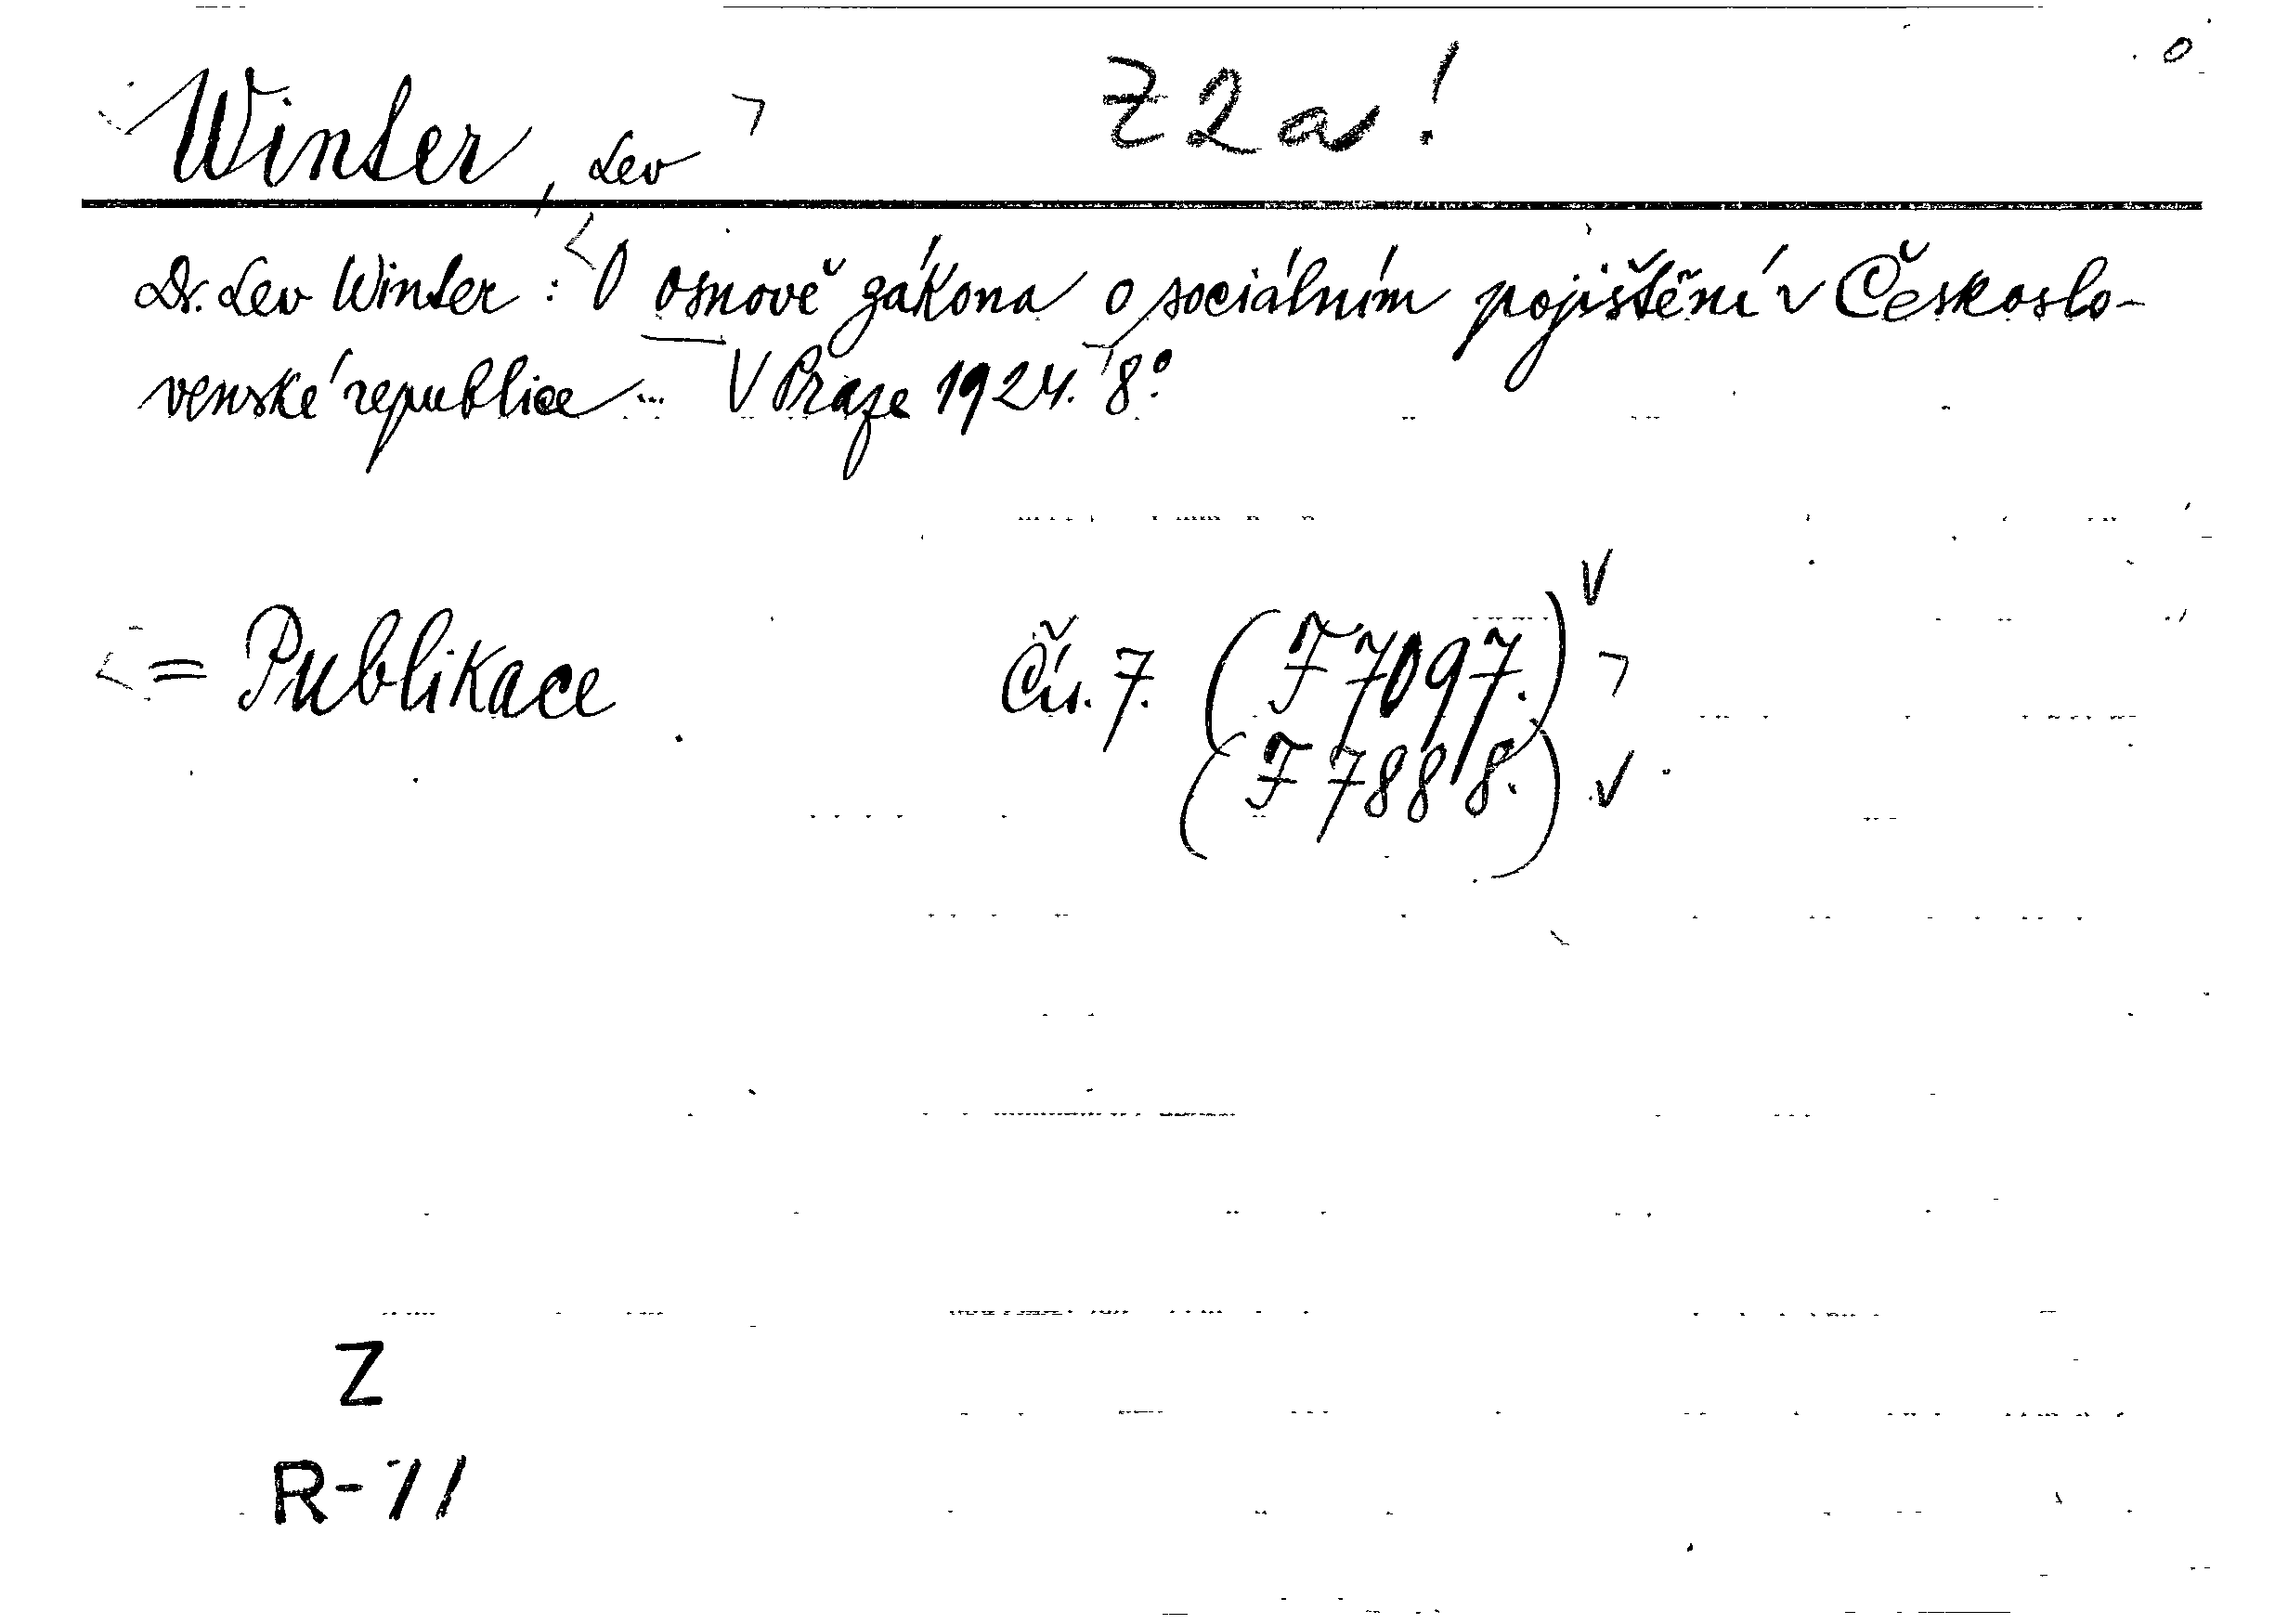 Winter, Lev Z2a!
Dr. Lev Winter: O osnově zákona o sociálním pojištění v Českoslo-
venské republice... V Praze 1924. 8°.
= Publikace Čís. 7. (F 7097.)
(F 7888.)
Z
R-71